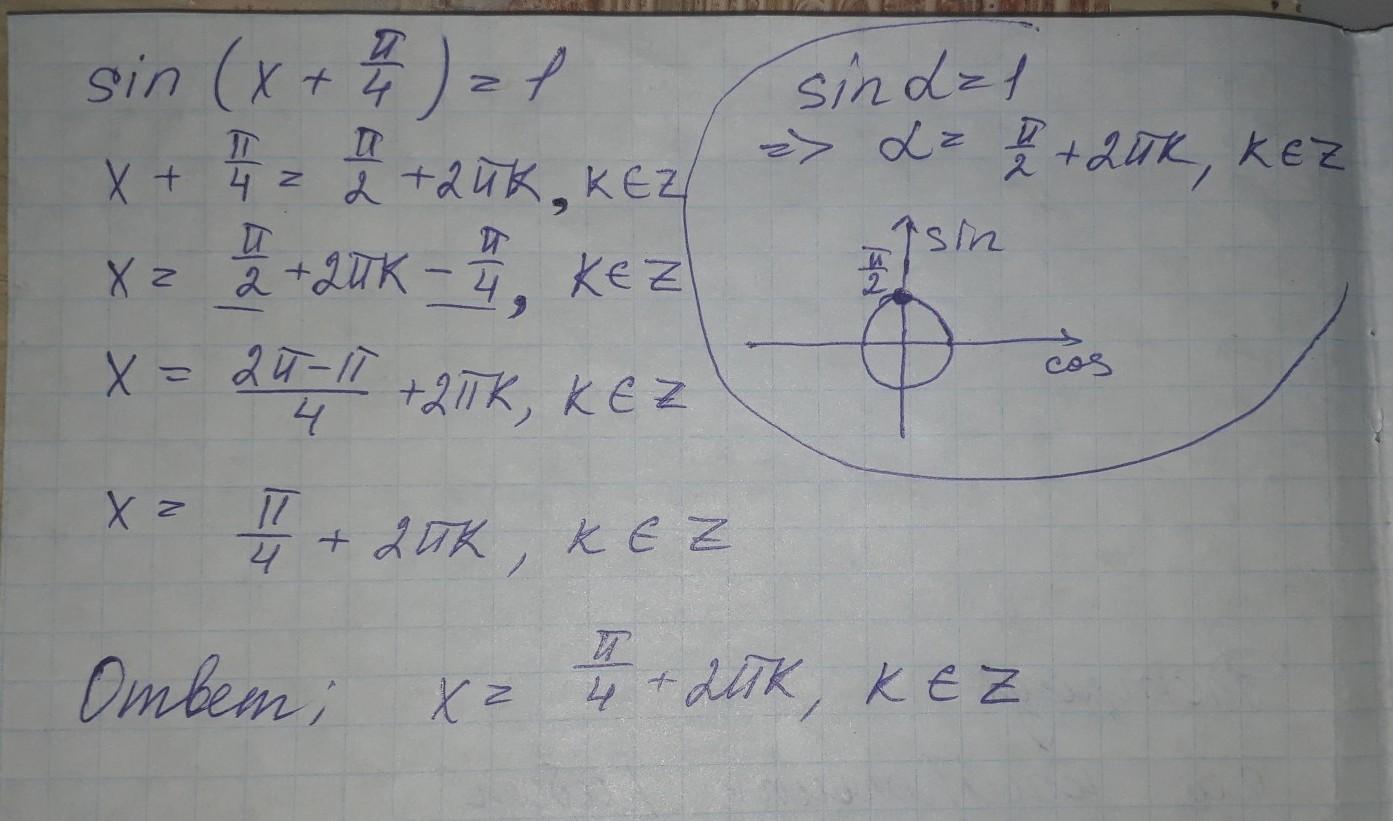 sin (x + π/4) = 1
x + π/4 = π/2 + 2πk, k ∈ Z
x = π/2 + 2πk - π/4, k ∈ Z
x = (2π-π)/4 + 2πk, k ∈ Z
x = π/4 + 2πk, k ∈ Z
sin α = 1
=> α = π/2 + 2πk, k ∈ Z
sin
π/2
cos
Ответ: x = π/4 + 2πk, k ∈ Z